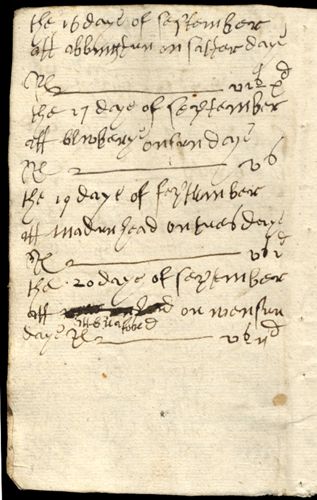 the 16 daye of september
att abbington on satter daye
R ——— vis xd
the 17 daye of september
att blwbery on sun daye
R ——— vs
the 19 daye of september
att madinhead on tues daye
R ——— vs id
the 20 daye of september
att on wensen
daye R ——— vs iid